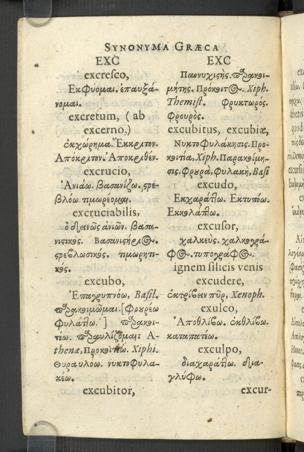 SYNONYMA GRÆCA
EXC
excresco,
Εκφύομαι. ἐπαυξά-
νομαι.
excretum, (ab
excerno.)
ἐκχώρημα. Εκκριτον.
Αποκριτον. Αποκριθεν.
excrucio,
Ανιάω. βασανίζω. στρε-
βλόω. τιμωρέομαι.
excruciabilis,
βασα-
νιστικός.
τιμωρητι-
κός.
excubo,
Επαγρυπνέω. Basil.
φυλάττω.]
Athenæ. Xiphi.
Θυραυλέω. νυκτοφυλα-
κέω.
excubitor,
EXC
Παννυχιστής.
Xiph.
Themist. Φρυκτωρός.
Φρουρός.
excubitus, excubiæ,
Νυκτοφυλάκησις. Προ-
κοιτία. Xiph. Παρακοίμη-
σις. Φρουρά. Φυλακή. Bas.
excudo,
Εκχαράττω. Εκτυπόω.
Εκκολάπτω.
excusor,
χαλκεύς. χαλκογρά-
φος. τυπογράφος.
ignem silicis venis
excudere,
ἐκτρίβειν πῦρ. Xenoph.
exculco,
Αποθλίβω. ἐκθλίβω.
καταπατέω.
exculpo,
διαχαράττω. δια-
γλύφω.
excur-